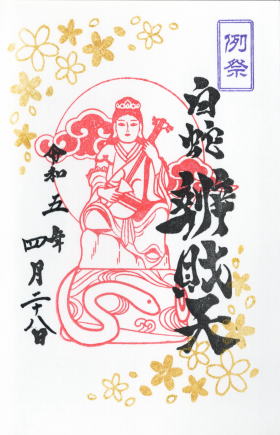 例祭
白蛇辨財天
令和五年
四月二十八日